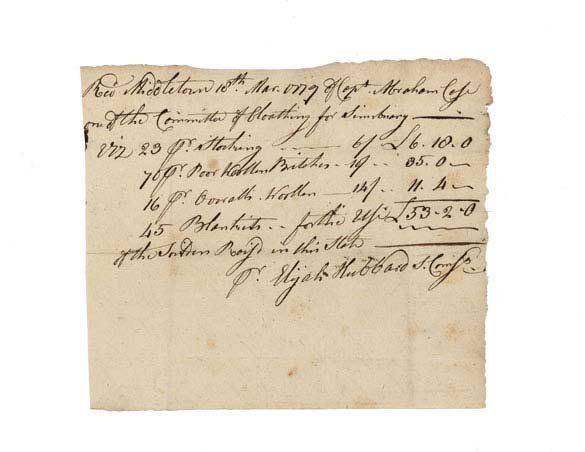 Recd Middletown 18th Mar. 1779 of Capt. Abraham Case
one of the Committee of Cloathing for Simsbury
viz 23 pr. Stocking 6/ £6.18.0
70 pr. Poor Wollen Britches 10/ 35.0
16 pr. Overalls Wollen 14/ 11.4
45 Blankets for the Use £53-2-0
of the Soldiers Raisd in this State
pr. Elijah Hubbard S.